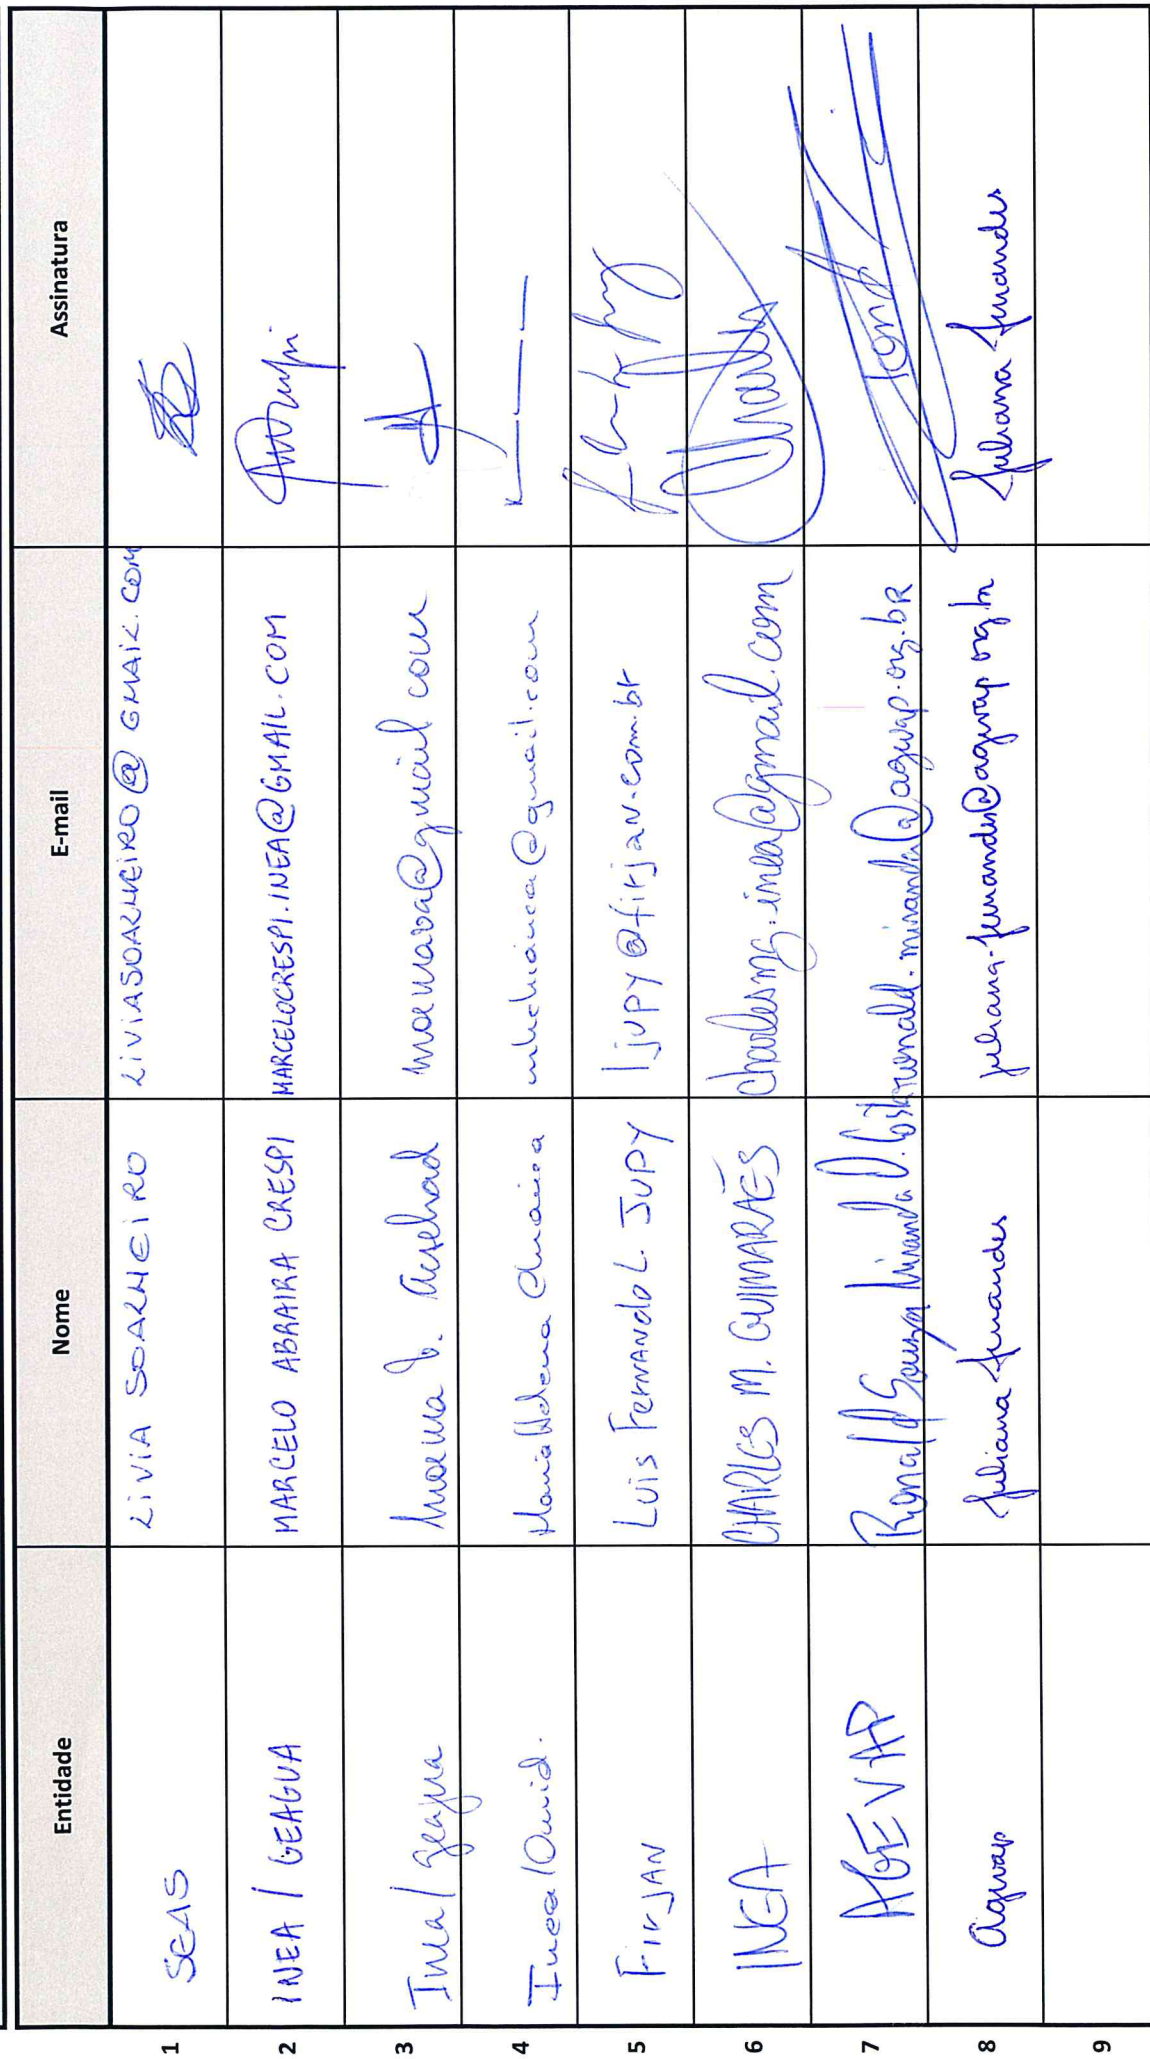 Entidade Nome E-mail Assinatura
1 SEAS LIVIA SOARNEIRO LIVIASOARNEIRO@GMAIL.COM
2 INEA / GEAGUA MARCELO ABRAIRA CRESPI MARCELOCRESPI.INEA@GMAIL.COM
3 Inea / geagua Moema
4 Inea Maria Helena
5 FirJAN Luis Fernando L. JUPY ljupy@firjan.com.br
6 INEA CHARLES M. GUIMARÃES charlesmg.inea@gmail.com Charles
7 AGEVAP Ronald Souza Miranda O. Costa ronald.miranda@agevap.org.br
8 Agevap Juliana Fernandes juliana.fernandes@agevap.org.br Juliana Fernandes
9